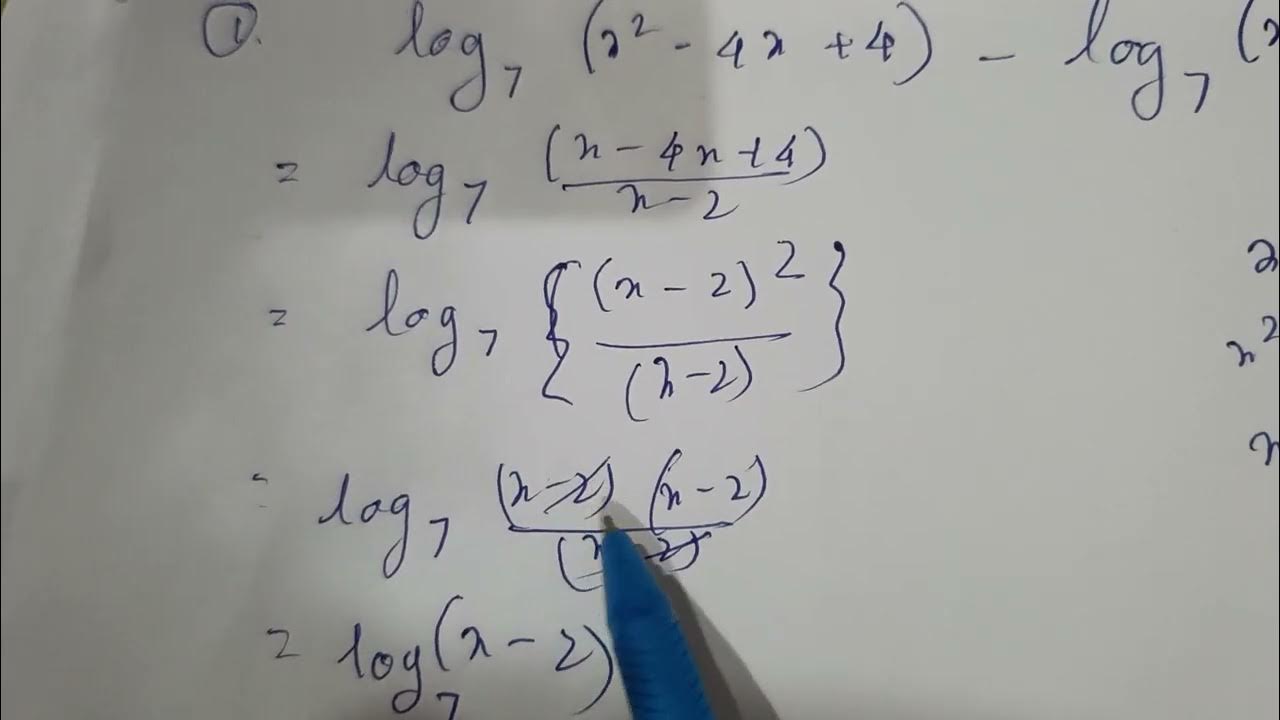 ①. log₇ (x² - 4x + 4) - log₇ (x
= log₇ (x - 4x + 4) / x - 2
= log₇ { (x - 2)² / (x - 2) }
= log₇ (x - 2) (x - 2) / (x - 2)
= log₇ (x - 2)
x
x²
x